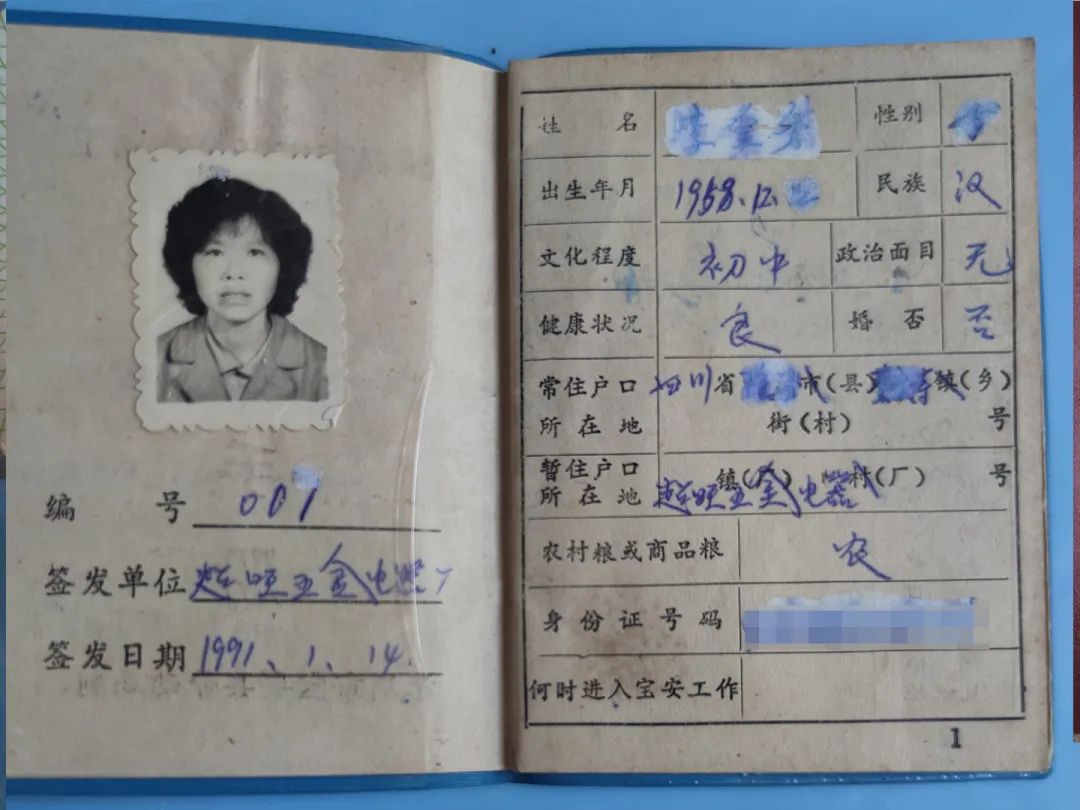 编号 001
签发单位 超旺五金电器厂
签发日期 1991、1、14.
姓名 性别
出生年月 1958、12、 民族 汉
文化程度 初中 政治面目 无
健康状况 良 婚否 否
常住户口 四川省 市(县) 镇(乡)
所在地 街(村) 号
暂住户口 镇( ) 村(厂) 号
所在地 超旺五金电器
农村粮或商品粮 农
身份证号码
何时进入宝安工作
1